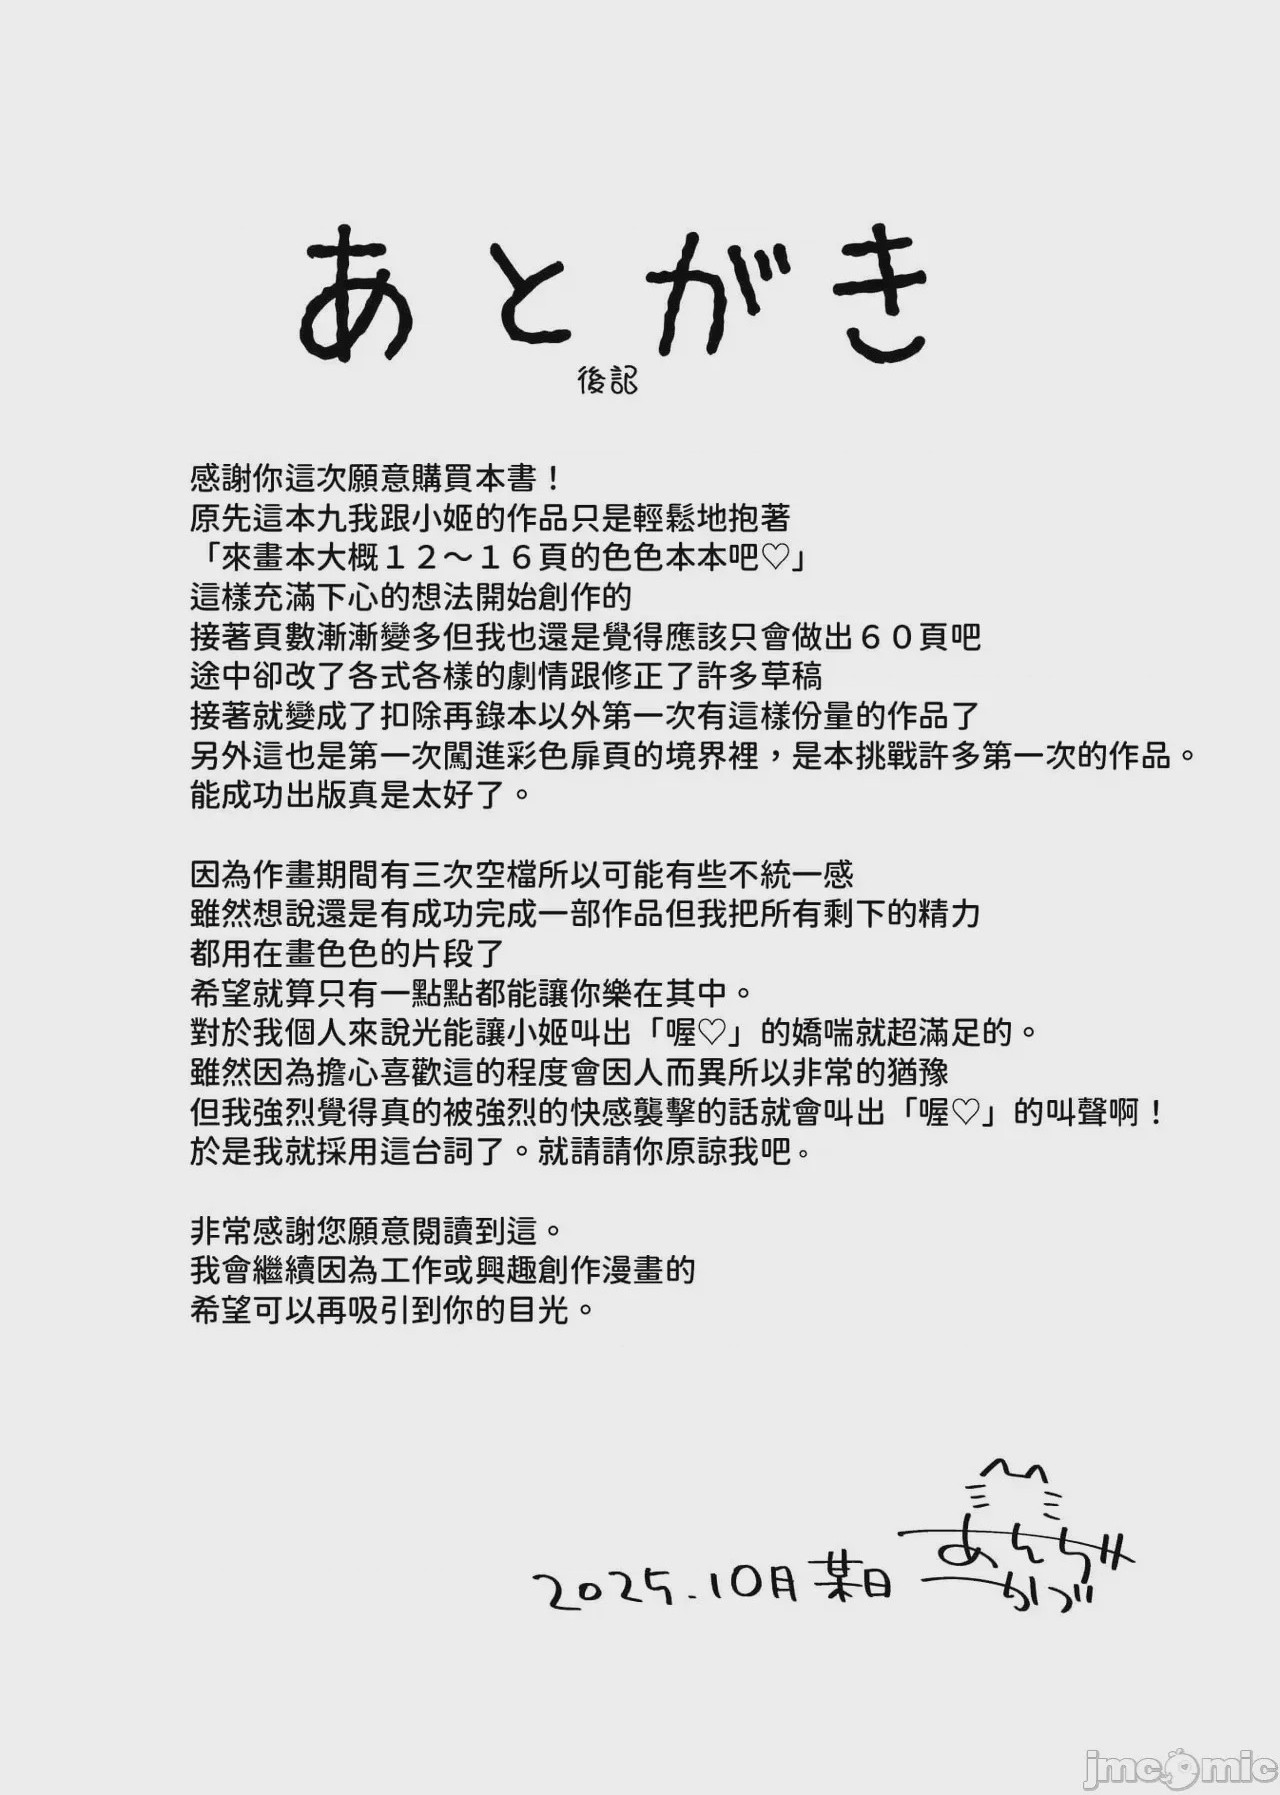 あとがき
後記
感謝你這次願意購買本書！
原先這本九我跟小姬的作品只是輕鬆地抱著
「來畫本大概１２～１６頁的色色本本吧♡」
這樣充滿下心的想法開始創作的
接著頁數漸漸變多但我也還是覺得應該只會做出６０頁吧
途中卻改了各式各樣的劇情跟修正了許多草稿
接著就變成了扣除再錄本以外第一次有這樣份量的作品了
另外這也是第一次闖進彩色扉頁的境界裡，是本挑戰許多第一次的作品。
能成功出版真是太好了。
因為作畫期間有三次空檔所以可能有些不統一感
雖然想說還是有成功完成一部作品但我把所有剩下的精力
都用在畫色色的片段了
希望就算只有一點點都能讓你樂在其中。
對於我個人來說光能讓小姬叫出「喔♡」的嬌喘就超滿足的。
雖然因為擔心喜歡這的程度會因人而異所以非常的猶豫
但我強烈覺得真的被強烈的快感襲擊的話就會叫出「喔♡」的叫聲啊！
於是我就採用這台詞了。就請請你原諒我吧。
非常感謝您願意閱讀到這。
我會繼續因為工作或興趣創作漫畫的
希望可以再吸引到你的目光。
2025.10月某日
jmcomic